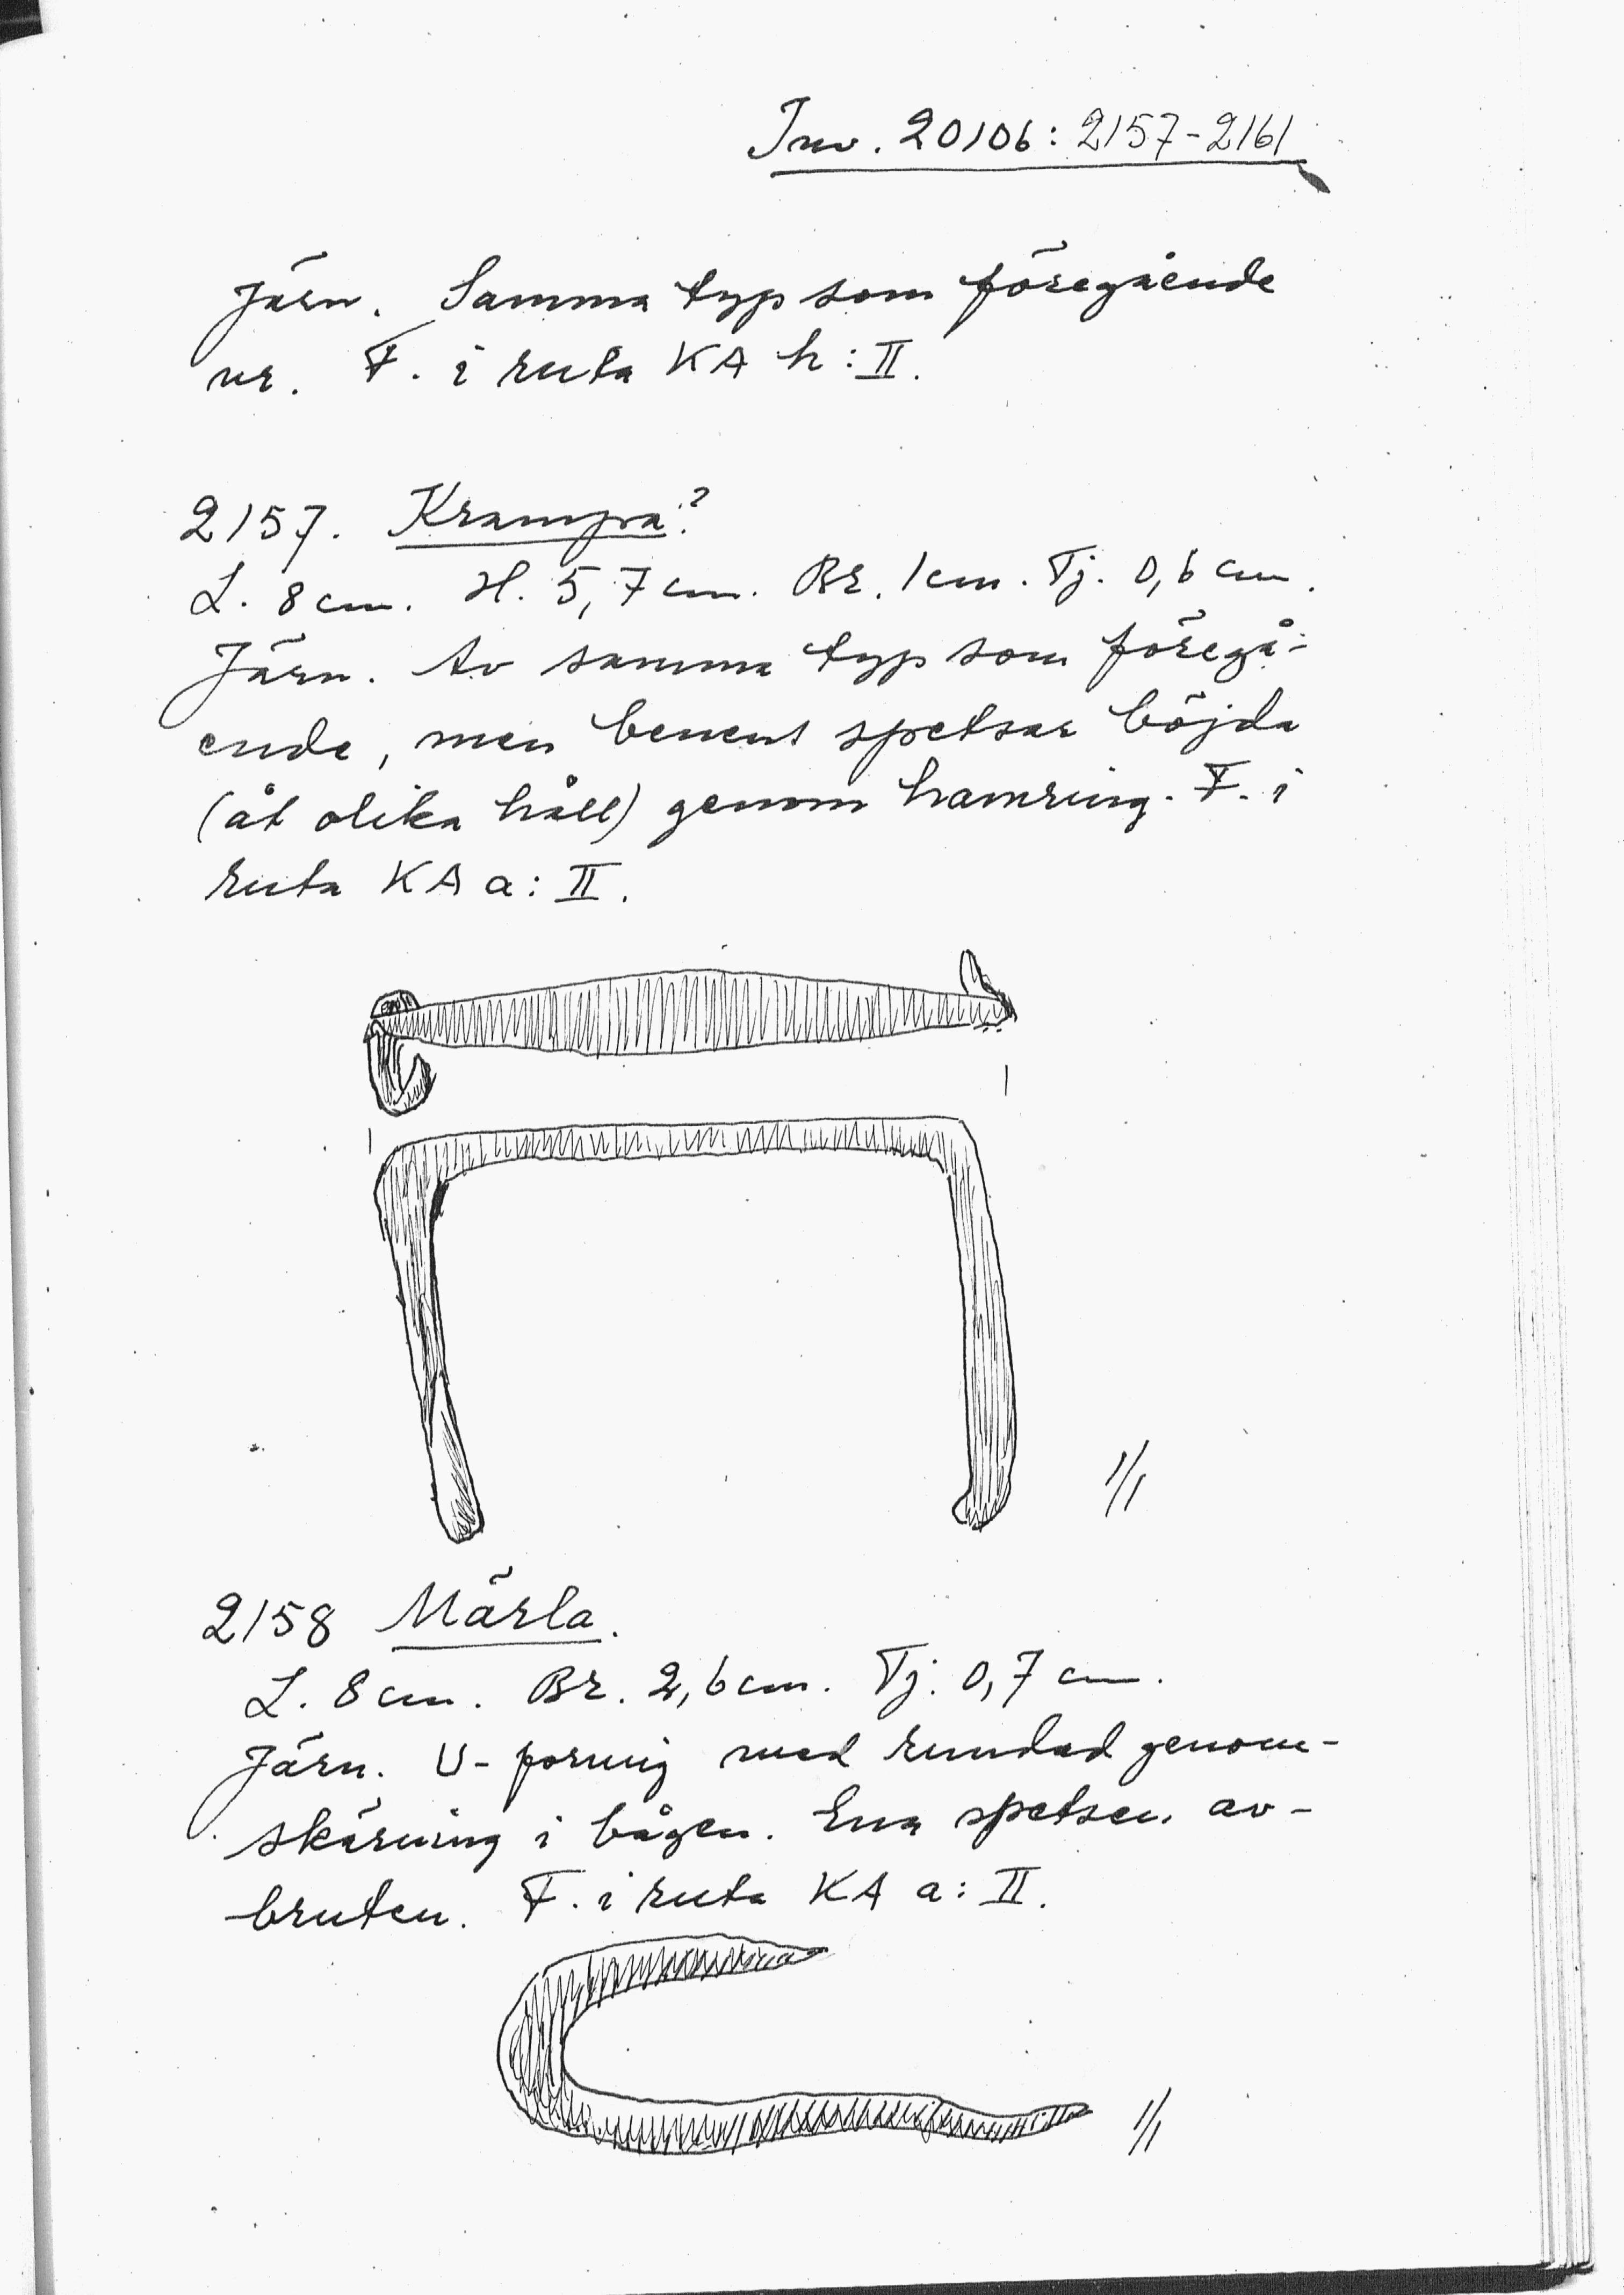 Inv. 20106: 2157-2161
Järn. Samma typ som föregående
nr. F. i ruta KA h: II.
2157. Krampa?
L. 8 cm. H. 5,7 cm. Br. 1 cm. Tj. 0,6 cm.
Järn. Av samma typ som föregå-
ende, men benens spetsar böjda
(åt olika håll) genom hamring. F. i
ruta KA a: II.
1/1
2158 Märla.
L. 8 cm. Br. 2,6 cm. Tj. 0,7 cm.
Järn. U-formig med rundad genom-
skärning i bågen. Ena spetsen av-
bruten. F. i ruta KA a: II.
1/1